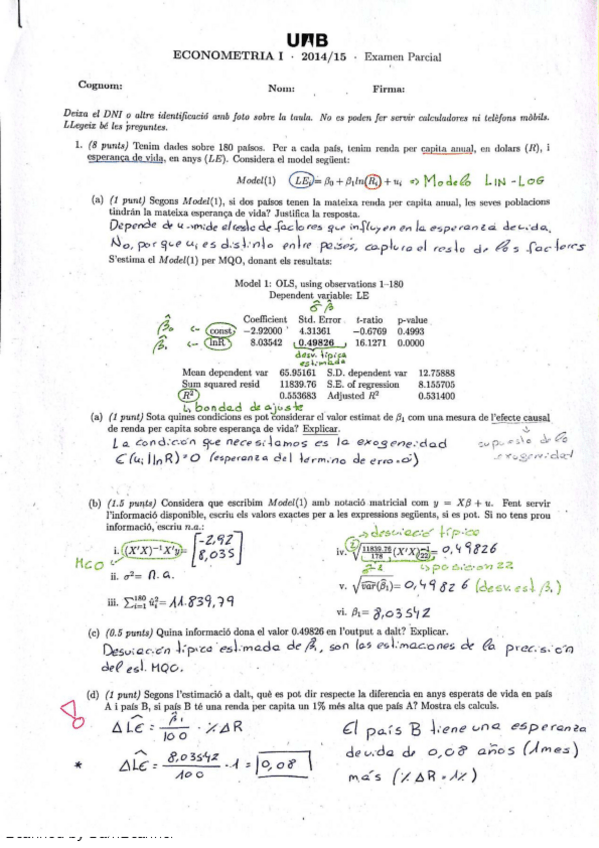 UAB
ECONOMETRIA I · 2014/15 · Examen Parcial
Cognom: Nom: Firma:
Deixa el DNI o altre identificació amb foto sobre la taula. No es poden fer servir calculadores ni telèfons mòbils.
LLegeix bé les preguntes.
1. (8 punts) Tenim dades sobre 180 països. Per a cada país, tenim renda per capita anual, en dolars (R), i
esperança de vida, en anys (LE). Considera el model següent:
Model(1) LEi = β0 + β1ln(Ri) + ui => Modelo LIN-LOG
(a) (1 punt) Segons Model(1), si dos països tenen la mateixa renda per capita anual, les seves poblacions
tindrán la mateixa esperança de vida? Justifica la resposta.
Depende de u. mide el resto de factores que influyen en la esperanza de vida.
No, porque ui es distinto entre países, captura el resto de los factores
S'estima el Model(1) per MQO, donant els resultats:
Model 1: OLS, using observations 1–180
Dependent variable: LE
σ̂ β̂
Coefficient Std. Error t-ratio p-value
β̂0 <- const −2.92000 4.31361 −0.6769 0.4993
β̂1 <- lnR 8.03542 0.49826 16.1271 0.0000
desv. típica
estimada
Mean dependent var 65.95161 S.D. dependent var 12.75888
Sum squared resid 11839.76 S.E. of regression 8.155705
R² 0.553683 Adjusted R² 0.531400
↳ bondad de ajuste
(a) (1 punt) Sota quines condicions es pot considerar el valor estimat de β1 com una mesura de l'efecte causal
de renda per capita sobre esperança de vida? Explicar.
La condición que necesitamos es la exogeneidad
supuesto de la
exogeneidad
E(ui|lnR)=0 (esperanza del termino de error=0)
(b) (1.5 punts) Considera que escribim Model(1) amb notació matricial com y = Xβ + u. Fent servir
l'informació disponible, escriu els valors exactes per a les expressions següents, si es pot. Si no tens prou
informació, escriu n.a.:
-> desviació típica
i. (X'X)⁻¹X'y = [-2,92
8,035]
MCO
iv. √11839.76/178 (X'X)⁻¹(22) = 0,49826
σ̂² ↳ posicion 22
ii. σ² = n.a.
v. √var(β̂1) = 0,49826 (desv. est β̂1)
iii. ∑¹⁸⁰i=1 ûi² = 11.839,79
vi. β̂1 = 8,03542
(c) (0.5 punts) Quina informació dona el valor 0.49826 en l'output a dalt? Explicar.
Desviación típica estimada de β̂1, son las estimaciones de la precisión
del est. MQO.
(d) (1 punt) Segons l'estimació a dalt, què es pot dir respecte la diferencia en anys esperats de vida en país
A i país B, si país B té una renda per capita un 1% més alta que país A? Mostra els calculs.
ΔL̂E = β̂1/100 · %ΔR
El país B tiene una esperanza
de vida de 0,08 años (1mes)
más (%ΔR=1%)
* ΔL̂E = 8,03542/100 · 1 = 0,08